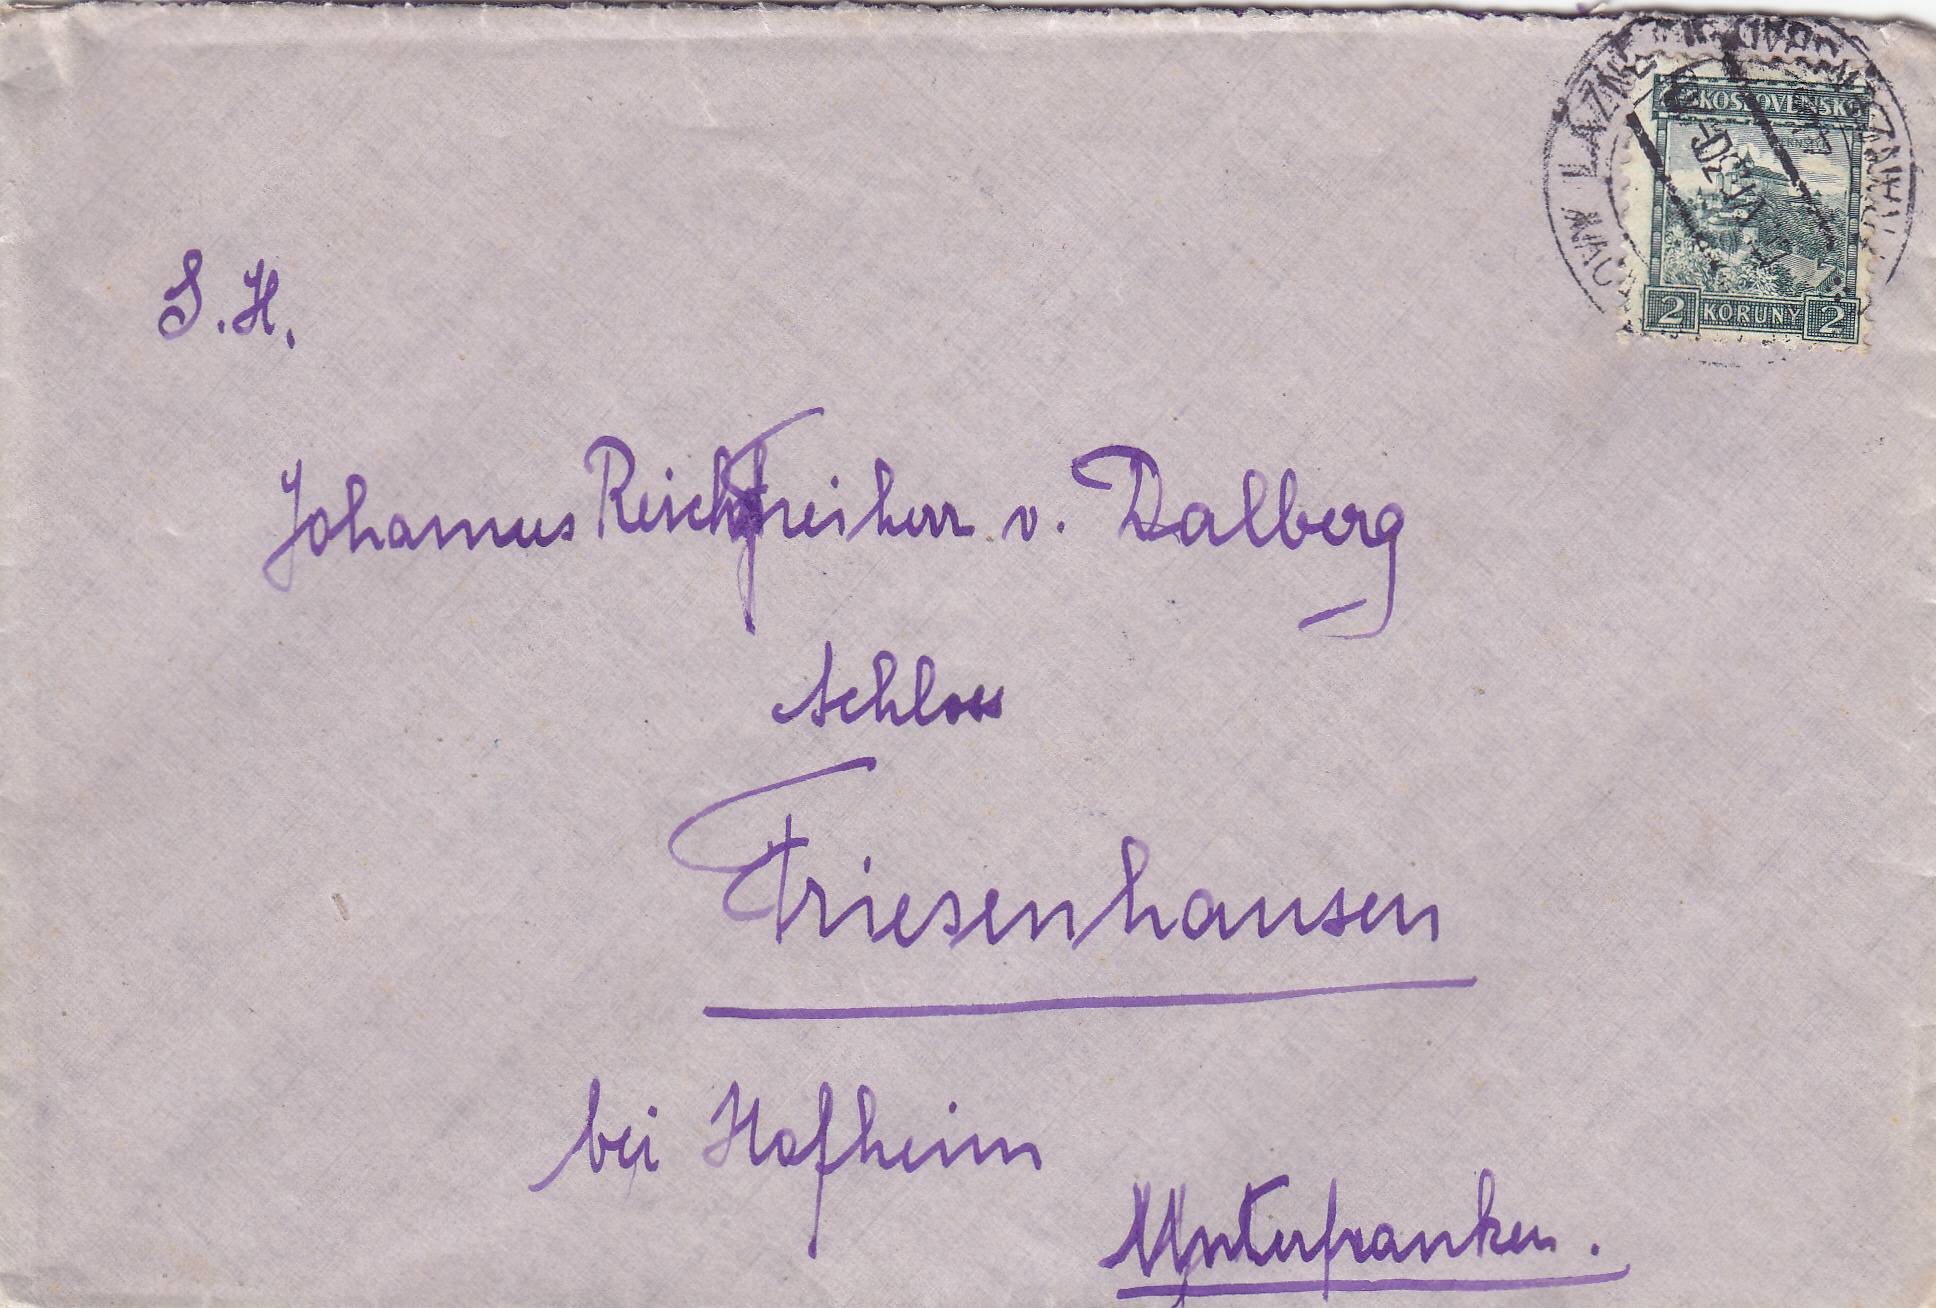 ČESKOSLOVENSKO
2 KORUNY 2
S. H.
Johannes Reichsfreiherr v. Dalberg
Schloss
Friesenhausen
bei Hofheim
Unterfranken.